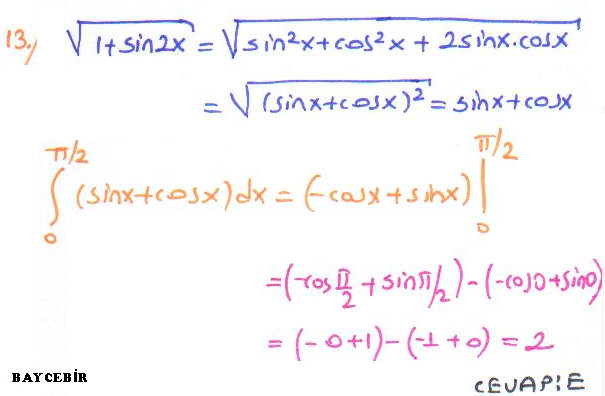 13.) √(1+sin2x) = √(sin²x+cos²x + 2sinx.cosx)
= √((sinx+cosx)²) = sinx+cosx
∫₀^(π/2) (sinx+cosx)dx = (-cosx+sinx) |₀^(π/2)
= (-cos π/2 + sin π/2) - (-cos0+sin0)
= (-0+1) - (-1+0) = 2
BAYCEBİR
CEVAP:E